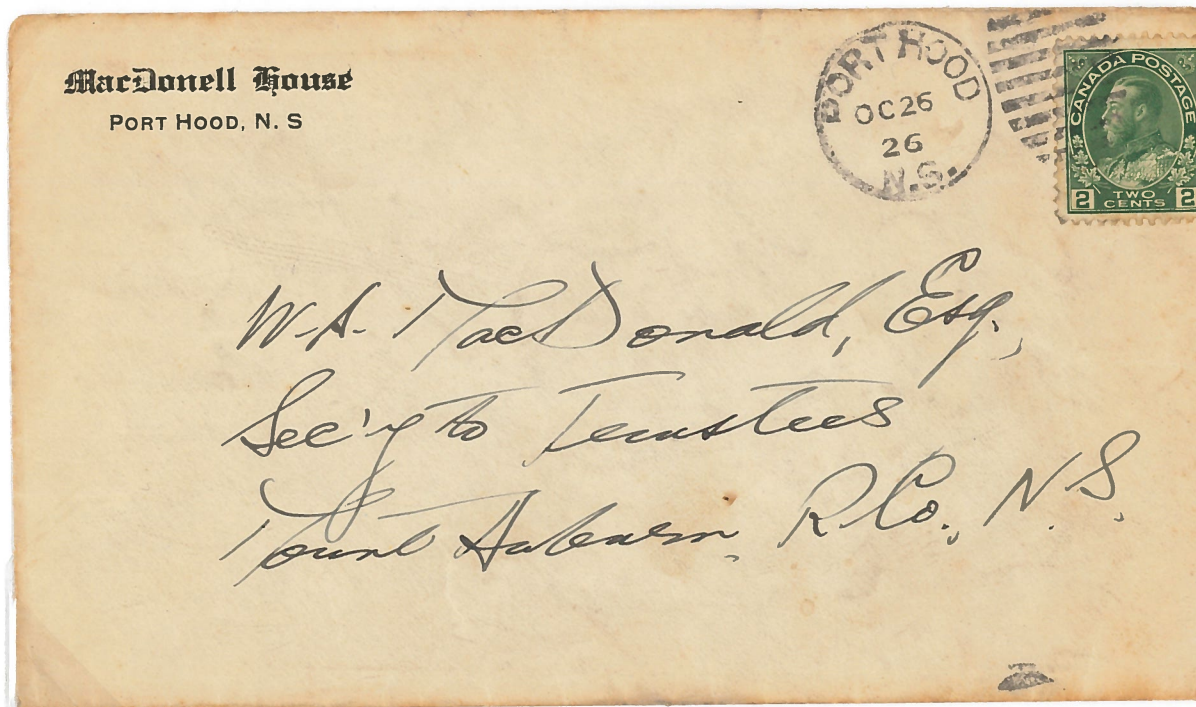 MacDonell House
PORT HOOD, N. S
PORT HOOD
OC 26
26
N.S.
CANADA POSTAGE
2 TWO CENTS 2
W. A. MacDonald, Esq.,
Sec'y to Trustees
Mount Auburn, R. Co., N. S.